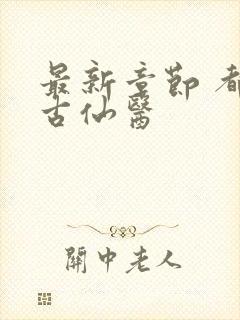 最新章節
古仙醫
關中老人